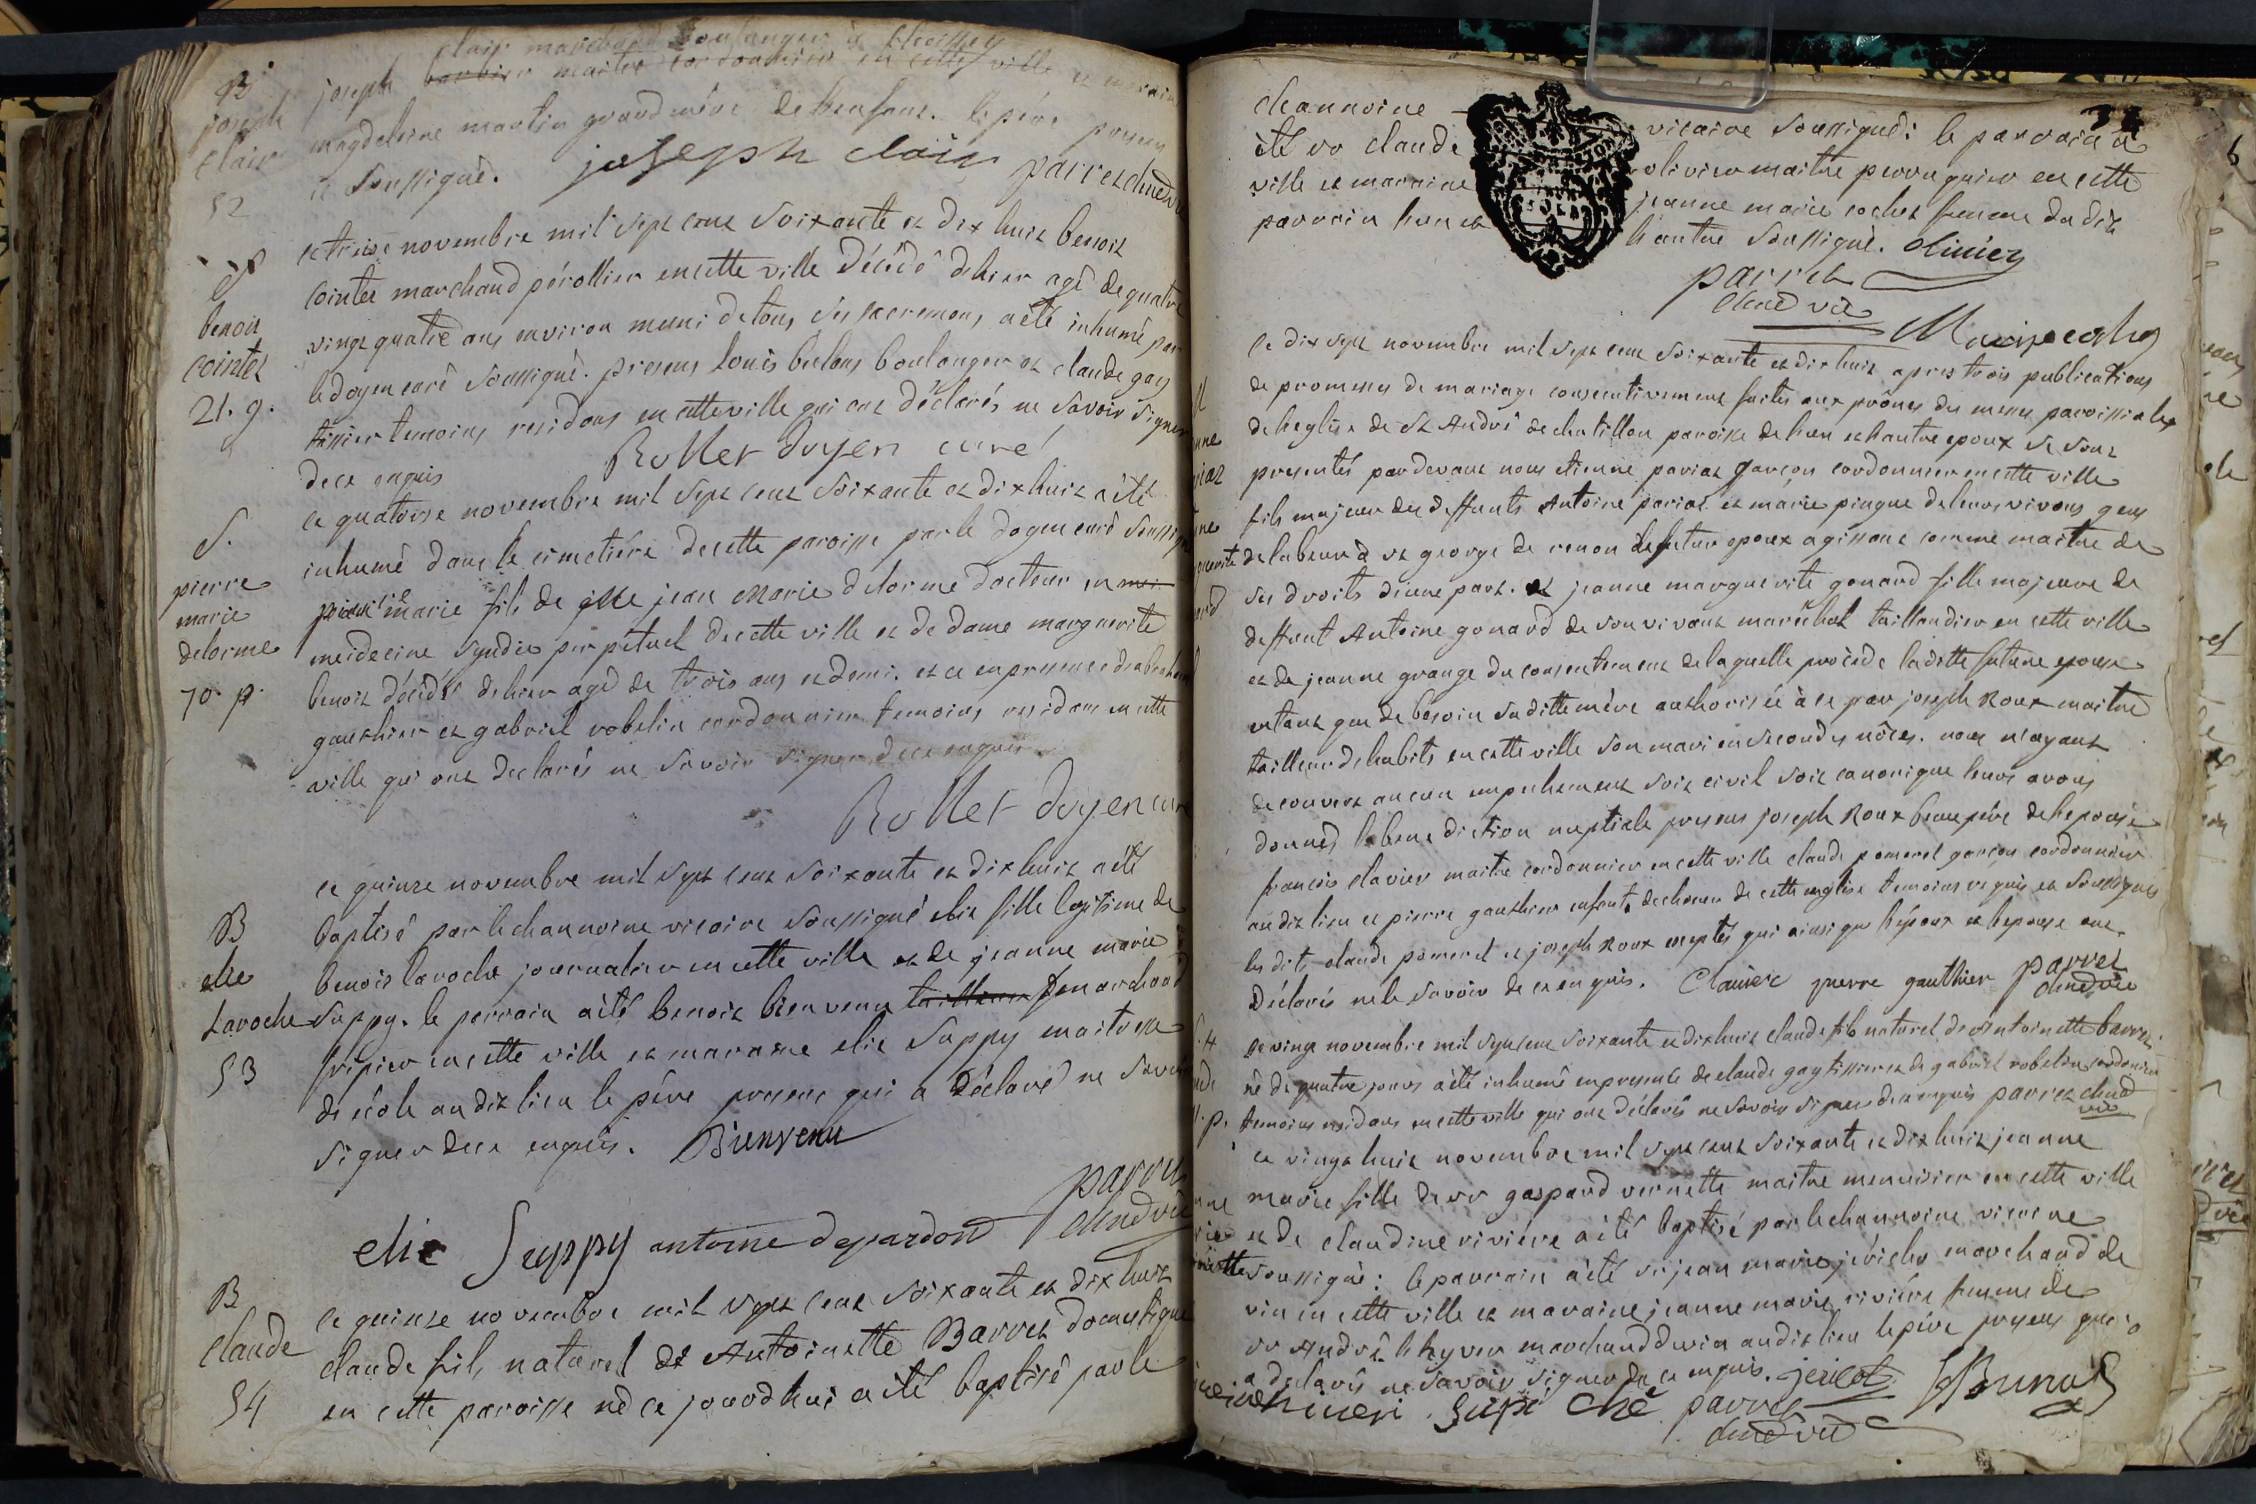 clair marchand boulanger à
joseph barbier maitre cordonnier en cette ville et maraine
magdeleine martin grand mére de l'enfant. le pére present
et soussigné. joseph clair parret chne vic
B
joseph
clair
52
ce treize novembre mil sept cent soixante et dix huit benoit
cointet marchand pérollier en cette ville décédé d'hier agé de quatre
vingt quatre ans environ muni de tous ses sacremens a été inhumé par
le doyen curé soussigné. presens louis burlans boulanger et claude gay
tissier temoins residans en cette ville qui ont déclarés ne savoir signer
de ce enquis Rollet doyen curé
S
benoit
cointet
21. g.
ce quatorze novembre mil sept cent soixante et dix huit a été
inhumé dans le cimetiére de cette paroisse par le doyen curé soussigné
pierre marie fils de jean marie delorme docteur en
meidecine syndic perpétuel de cette ville et de dame marguerite
benoit décédé d'hier agé de trois ans et demi. et ce en presence de
gauthier et gabriel robelin cordonnier temoins residans en cette
ville qui ont declarés ne savoir signer de ce enquis
Rollet doyen curé
S.
pierre
marie
delorme
70. p.
ce quinze novembre mil sept cent soixante et dix huit a été
baptisé par le channoine vicaire soussigné elie fille legitime de
benoit laroche journalier en cette ville et de jeanne marie
suppy. le parrain a été benoit bienvenu tailleur marchand
fripier en cette ville et maraine elie suppy maitresse
de école audit lieu le pére present qui a déclaré ne savoir
signer de ce enquis. Bienvenu
elie Suppy antoine dejardond parret
chne vic
B
elie
Laroche
53
ce quinze novembre mil sept cent soixante et dix huit
claude fils naturel de Antoinette Barret domestique
en cette paroisse né ce jourd'hui a été baptisé par le
B
claude
54
channoine vicaire soussigné: le parrain a
été sr claude olivier maitre perruquier en cette
ville et marraine jeanne marie cochet femme du dit
parrain l'un et l'autre soussigné. olivier
parret
chne vic
Marie cochet
ce dix sept novembre mil sept cent soixante et dix huit apres trois publications
de promesses de mariage consecutivement faites aux prônes des messes paroissiales
de l'eglise de St André de chatillon paroisse de l'un et l'autre epoux se sont
presentés pardevant nous etienne pariat garçon cordonnier en cette ville
fils majeur des deffunts Antoine pariat et marie pingue de leurs vivans gens
de labeur à st george de renon le futur epoux agissant comme maitre de
ses droits d'une part. et jeanne marguerite gonard fille majeure de
deffunt Antoine gonard de son vivant maréchal taillandier en cette ville
et de jeanne grange du consentement de laquelle procéde laditte future epouse
entant que de besoin saditte mére authorisée à ce par joseph Roux maitre
tailleur d'habits en cette ville son mari en secondes nôces. nous n'ayant
decouvert aucun empechement soit civil soit canonique leurs avons
donnés la benediction nuptiale presens joseph Roux beau pére de l'epouse
francois clavier maitre cordonnier en cette ville claude pomeret garçon cordonnier
audit lieu et pierre gauthier enfant de choeur de cette eglise temoins requis et soussignés
les dits claude pomeret et joseph Roux exceptés qui ainsi que l'époux et l'epouse ont
déclarés ne le savoir de ce enquis. Clavier pierre gauthier parret
chne vic
ce vingt novembre mil sept cent soixante et dix huit claude fils naturel de Antoinette barret
né de quatre jours a été inhumé en presence de claude gay tissier et de gabriel robelin cordonnier
temoins residans en cette ville qui ont déclarés ne savoir signer de ce enquis parret chne
vic
ce vingt huit novembre mil sept cent soixante et dix huit jeanne
marie fille de sr gaspard vernette maitre menuisier en cette ville
et de claudine riviére a été baptisé par le channoine vicaire
soussigné: le parrain a été sr jean marie jéricho marchand de
vin en cette ville et maraine jeanne marie riviére femme de
sr André le hyver marchand de vin audit lieu le pére present qui
a déclarés ne savoir signer de ce enquis.
parret
chne vic